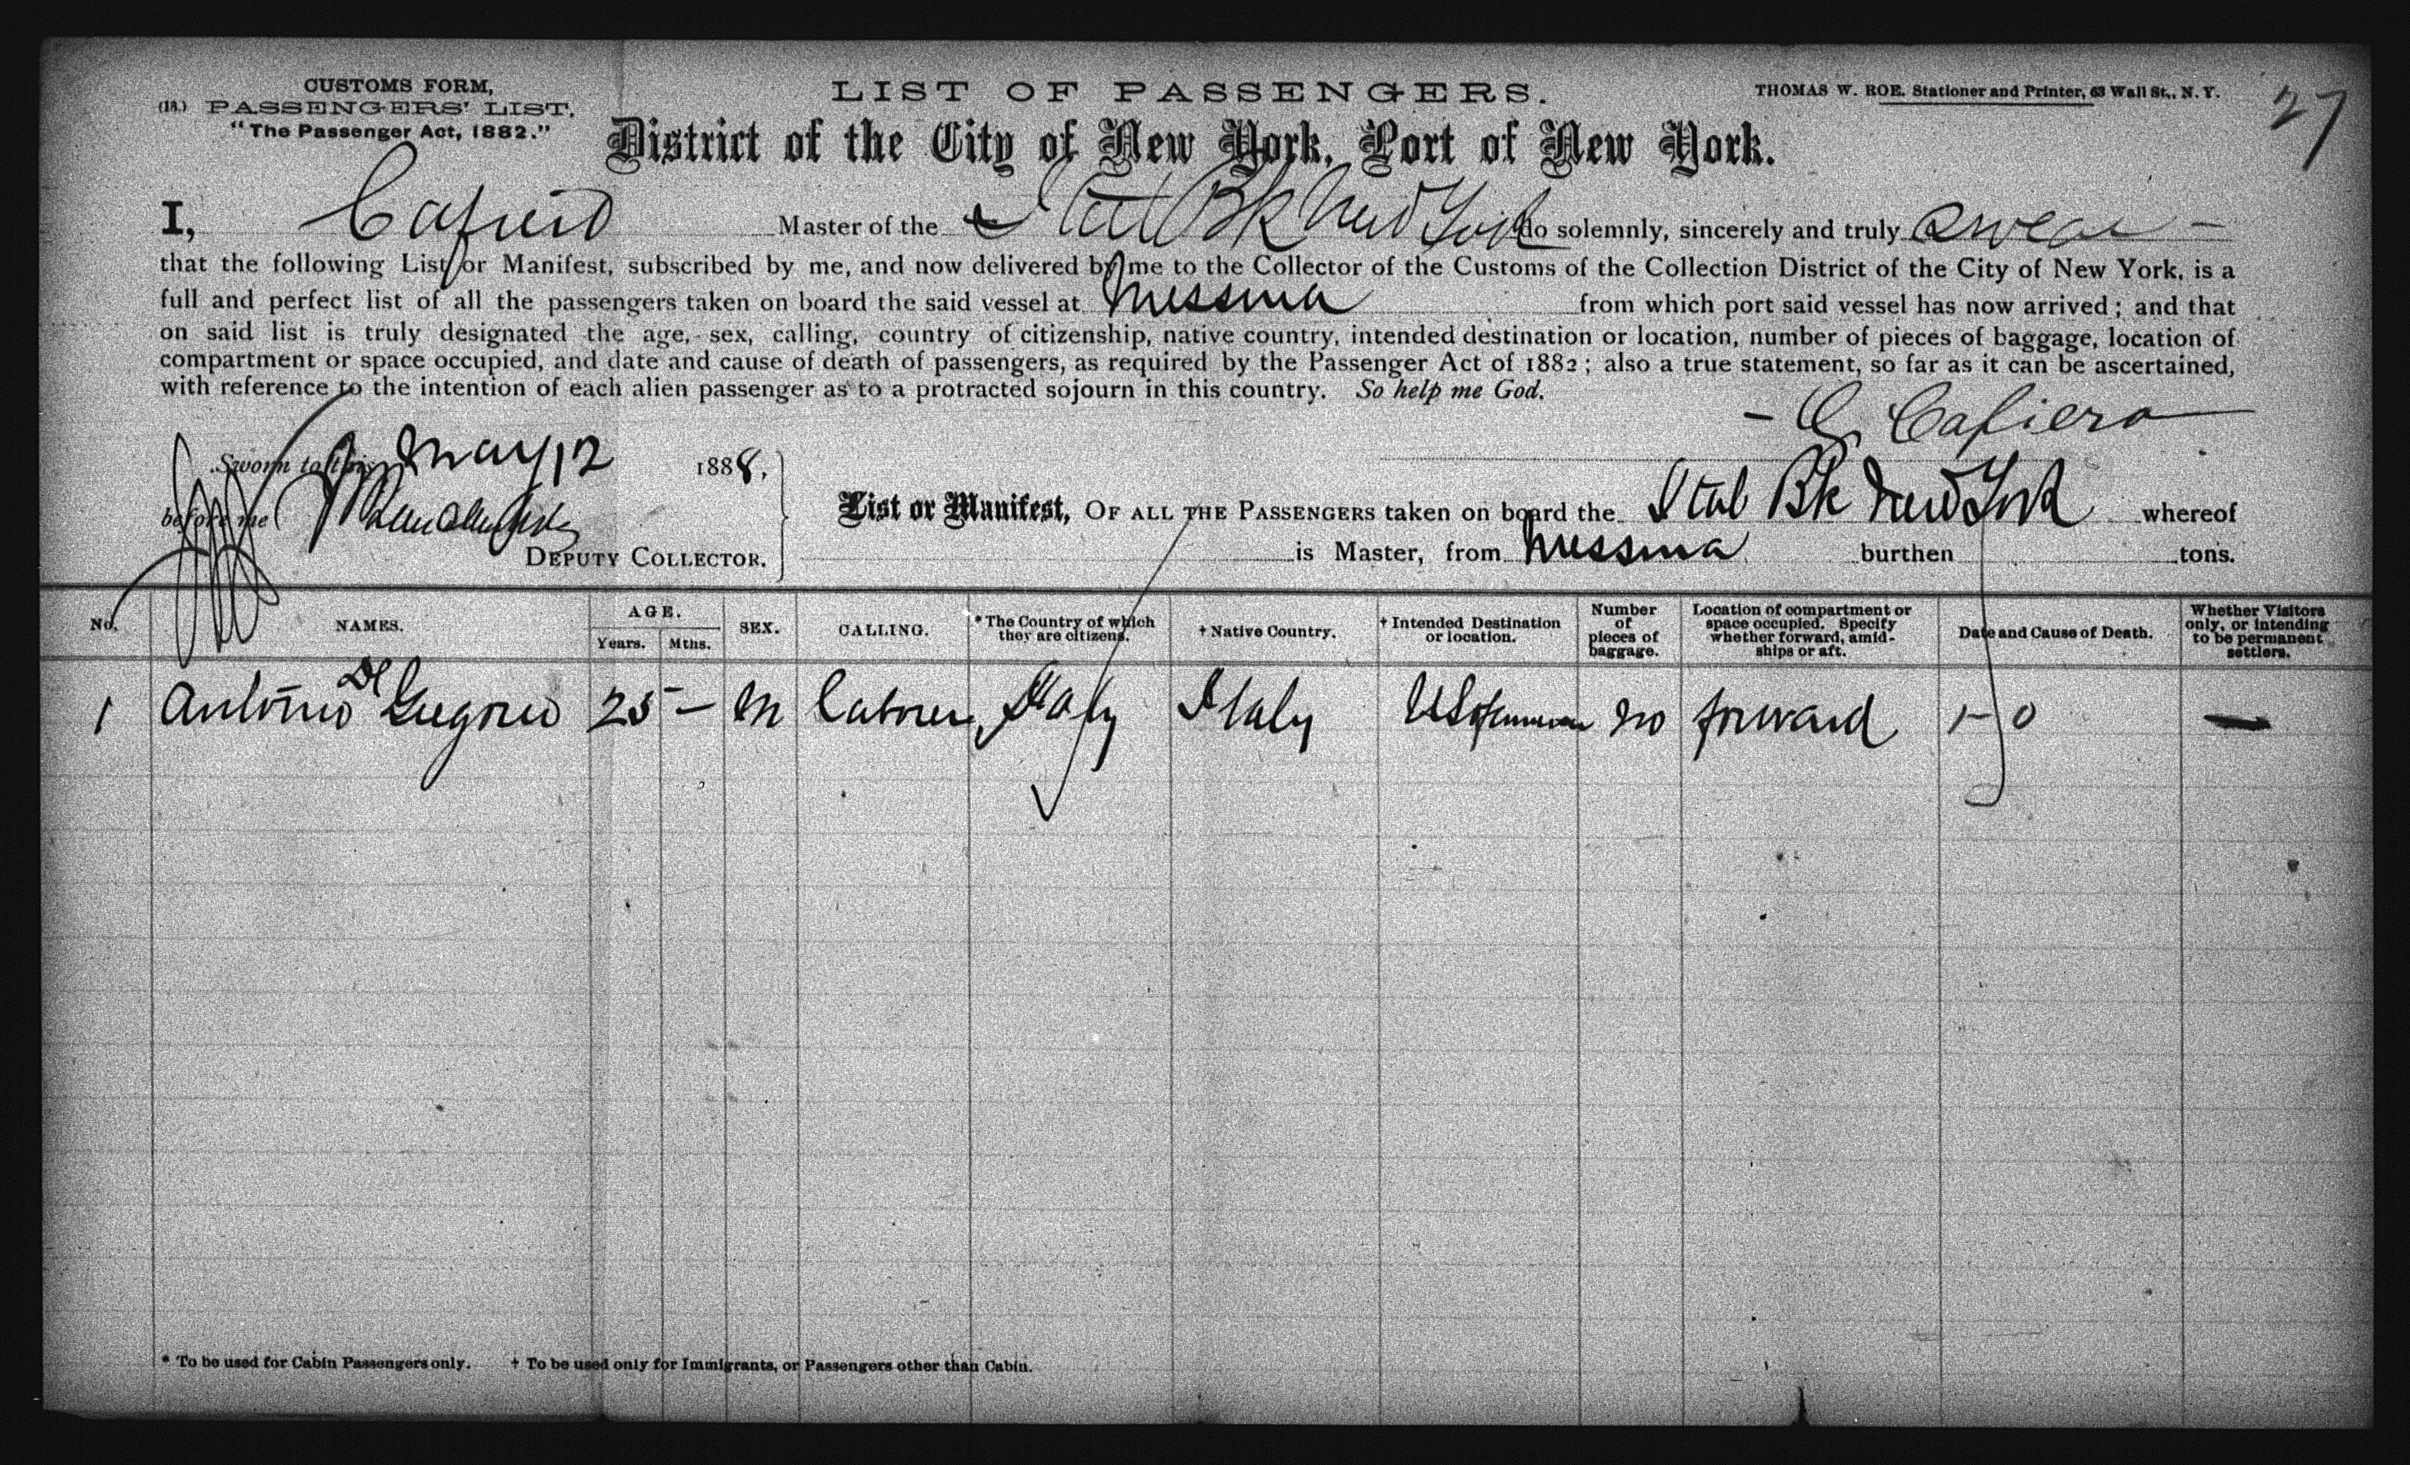 CUSTOMS FORM,
(18.) PASSENGERS' LIST,
"The Passenger Act, 1882."
LIST OF PASSENGERS.
THOMAS W. ROE, Stationer and Printer, 63 Wall St., N. Y.
27
District of the City of New York, Port of New York.
I, Cafiero Master of the Ital Bk New York do solemnly, sincerely and truly swear –
that the following List or Manifest, subscribed by me, and now delivered by me to the Collector of the Customs of the Collection District of the City of New York, is a
full and perfect list of all the passengers taken on board the said vessel at Messina from which port said vessel has now arrived; and that
on said list is truly designated the age, sex, calling, country of citizenship, native country, intended destination or location, number of pieces of baggage, location of
compartment or space occupied, and date and cause of death of passengers, as required by the Passenger Act of 1882; also a true statement, so far as it can be ascertained,
with reference to the intention of each alien passenger as to a protracted sojourn in this country. So help me God.
– G. Cafiero
Sworn to this May 12 1888,
before me
DEPUTY COLLECTOR.
List or Manifest, OF ALL THE PASSENGERS taken on board the Ital Bk New York whereof
is Master, from Messina burthen tons.
No. NAMES. AGE. Years. Mths. SEX. CALLING. * The Country of which they are citizens. † Native Country. † Intended Destination or location. Number of pieces of baggage. Location of compartment or space occupied. Specify whether forward, amidships or aft. Date and Cause of Death. Whether Visitors only, or intending to be permanent settlers.
1 Antonio De Gregorio 25 – M Laborer Italy Italy US of America no forward – 0 –
* To be used for Cabin Passengers only. † To be used only for Immigrants, or Passengers other than Cabin.